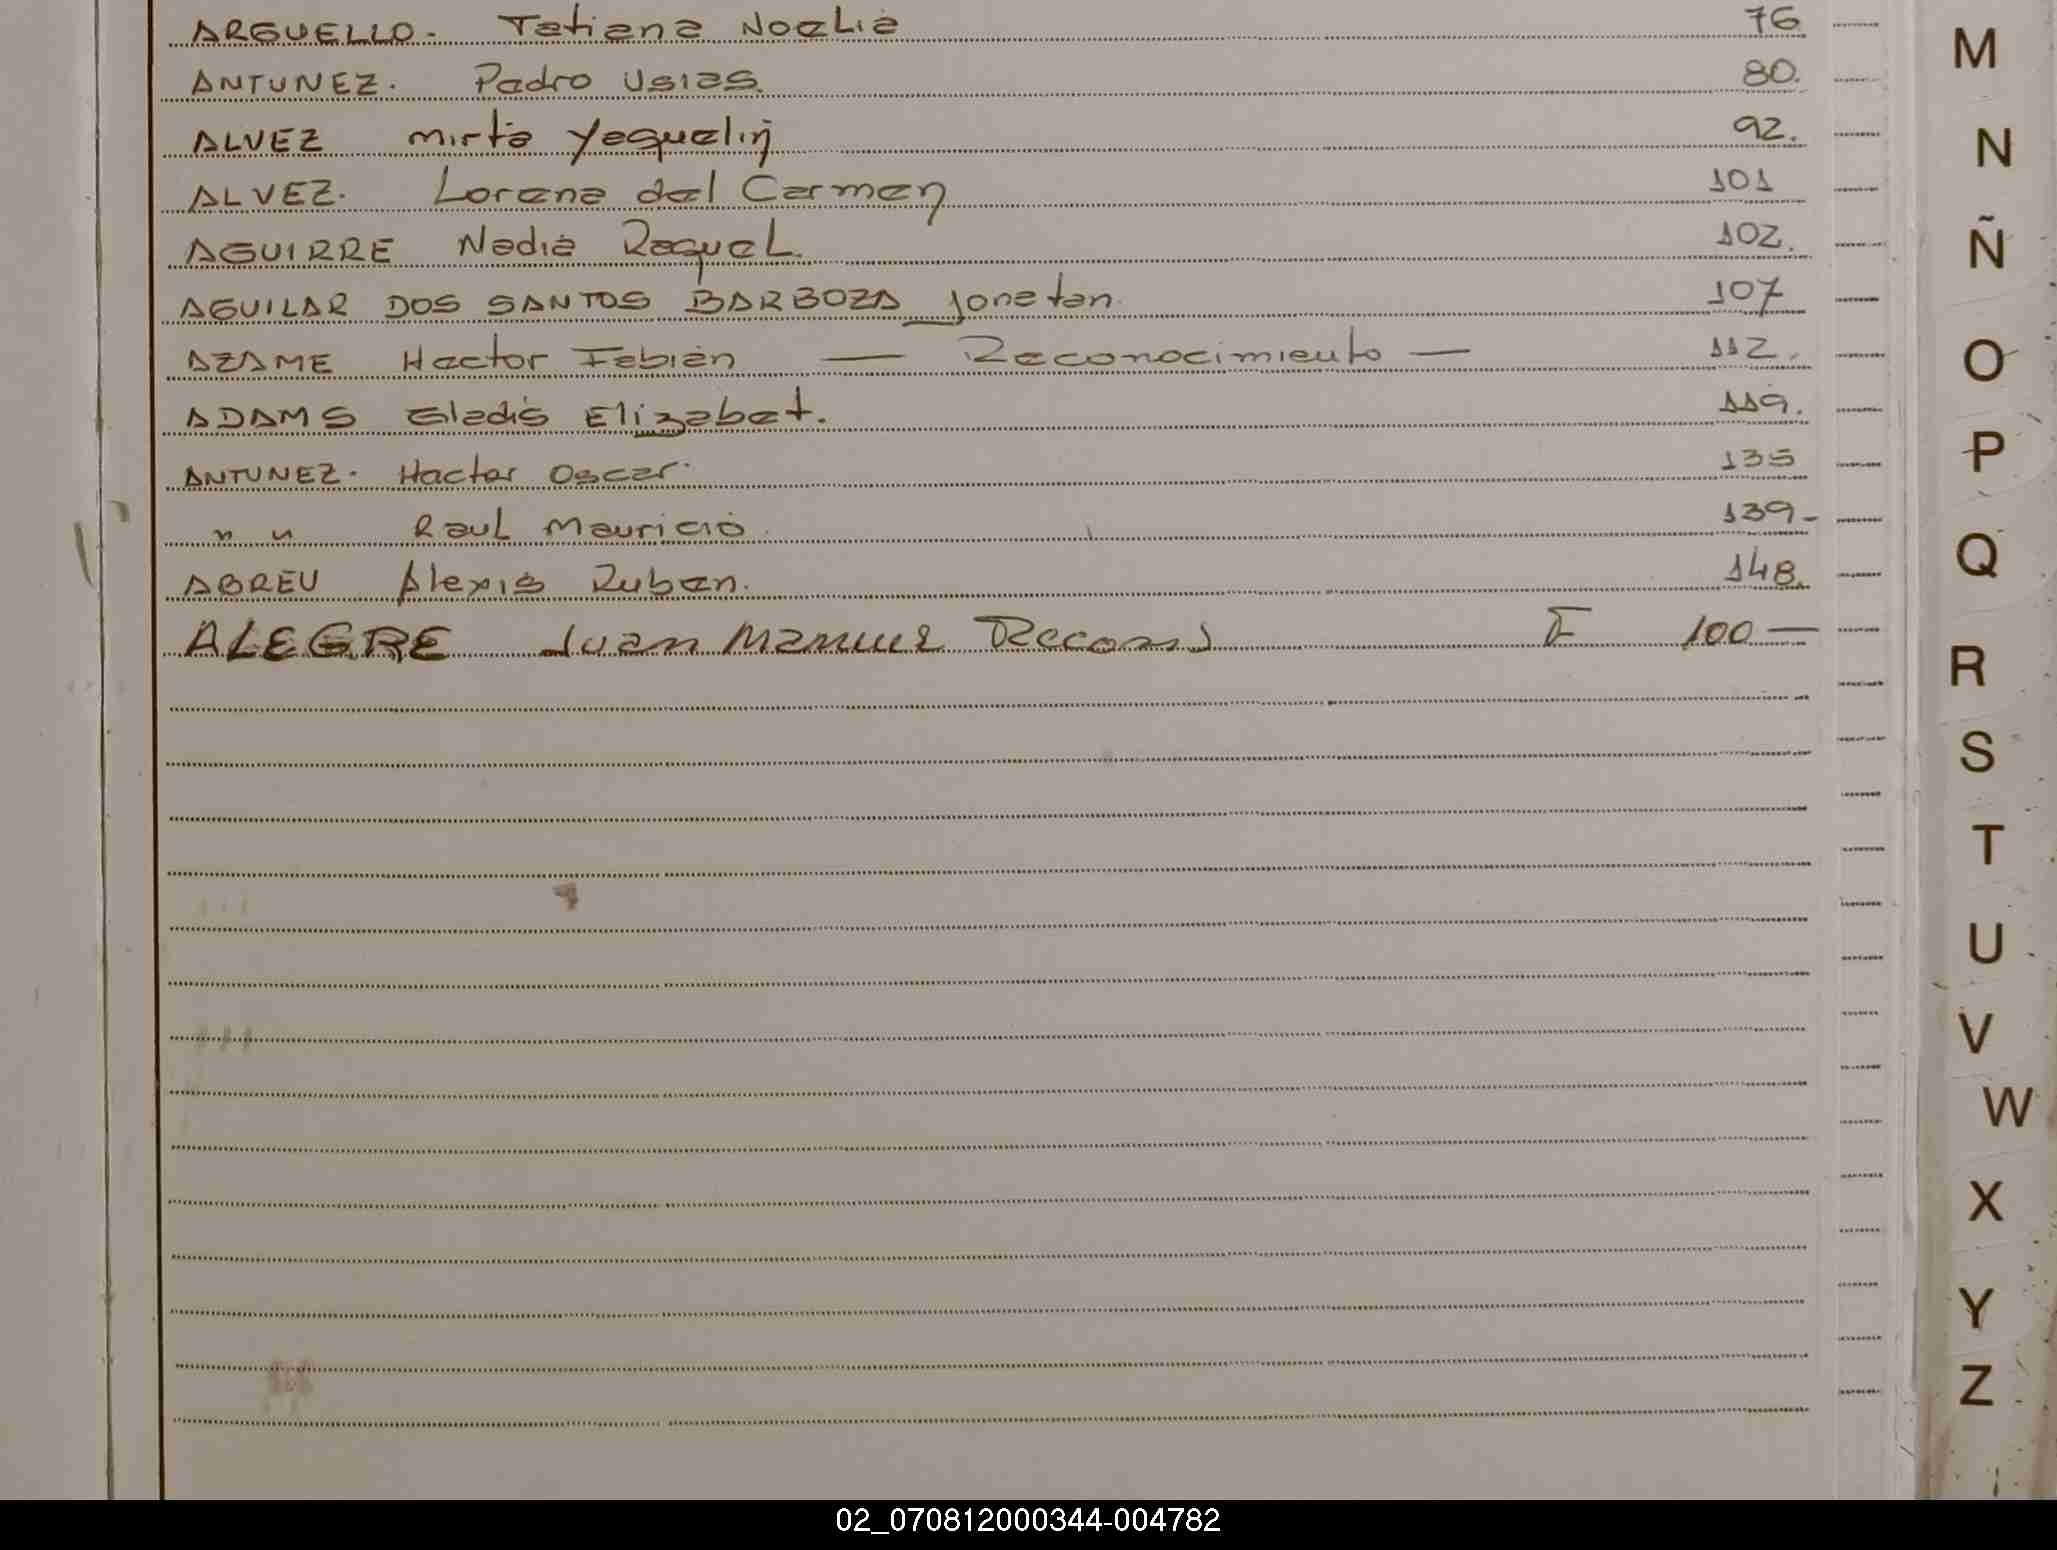 ARGUELLO. Tatiana Noelia 76
ANTUNEZ. Pedro Usias. 80.
ALVEZ Mirta Yaquelin 92.
ALVEZ. Lorena del Carmen 101
AGUIRRE Nadia Raquel. 102.
AGUILAR DOS SANTOS BARBOZA Jonatan. 107
AZAME Hector Fabián — Reconocimiento — 112.
ADAMS Gladis Elizabet. 119.
ANTUNEZ. Hector Oscar. 135
" " Raul Mauricio. 139-
ABREU Alexis Ruben. 148.
ALEGRE Juan Manuel F 100 —
M
N
Ñ
O
P
Q
R
S
T
U
V
W
X
Y
Z
02_070812000344-004782